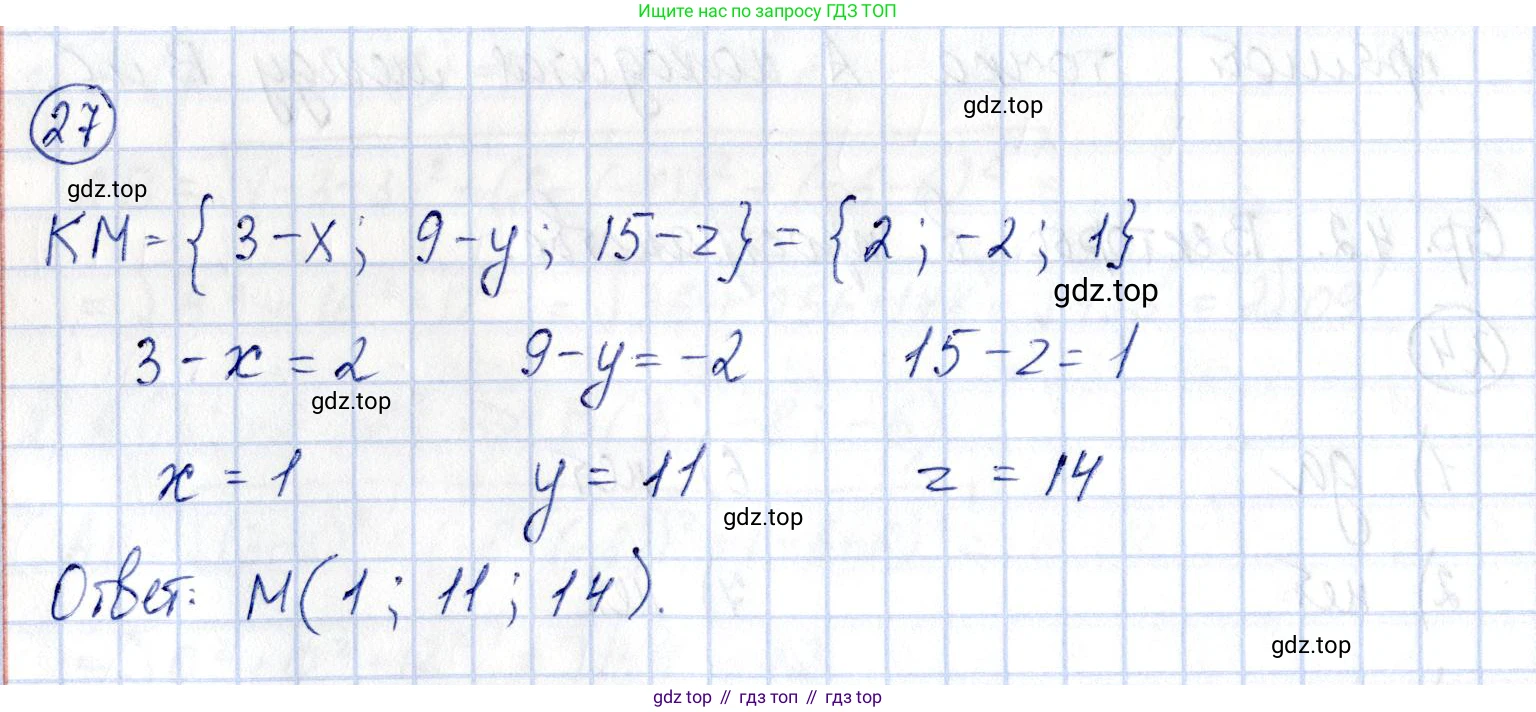 Ищите нас по запросу ГДЗ ТОП
gdz.top
27
gdz.top
KM = { 3 - x; 9 - y; 15 - z} = {2; -2; 1}
gdz.top
3 - x = 2 9 - y = -2 15 - z = 1
gdz.top
x = 1 y = 11 z = 14
gdz.top
Ответ: M(1; 11; 14).
gdz.top
gdz top // гдз топ // гдз top